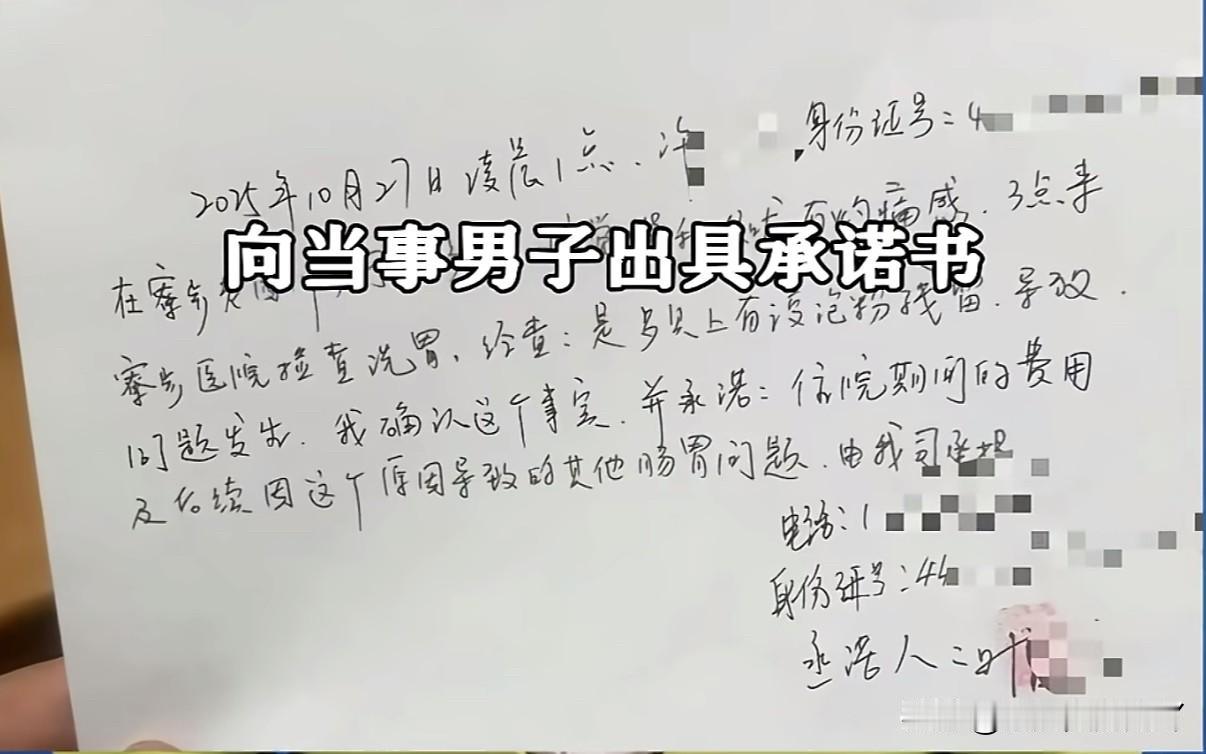 身份证号：4
2025年10月27日凌晨1点、许
有灼痛感、3点来
向当事男子出具承诺书
在寮步
寮步医院检查洗胃、经查：是餐具上有浸泡粉残留、导致
问题发生、我确认这个事实、并承诺：住院期间的费用
及后续因这个原因导致的其他肠胃问题、由我司承担
电话：1
身份证号：44
承诺人：叶